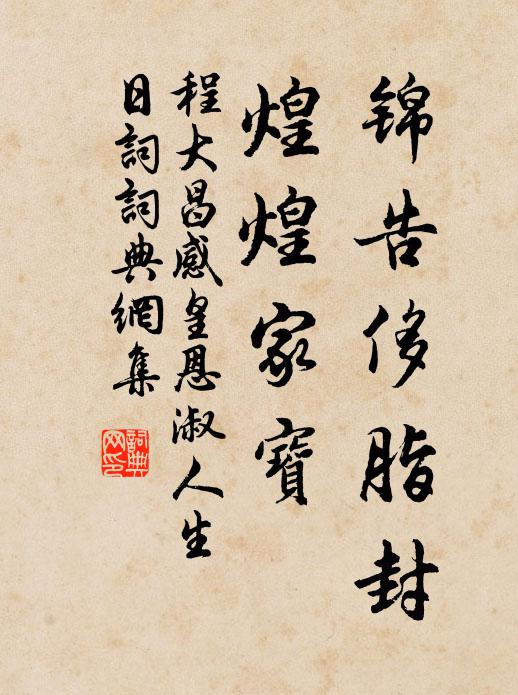 锦告侈脂封
煌煌家寶
程大昌感皇恩淑人生
日詞詞典網集
詞典网印